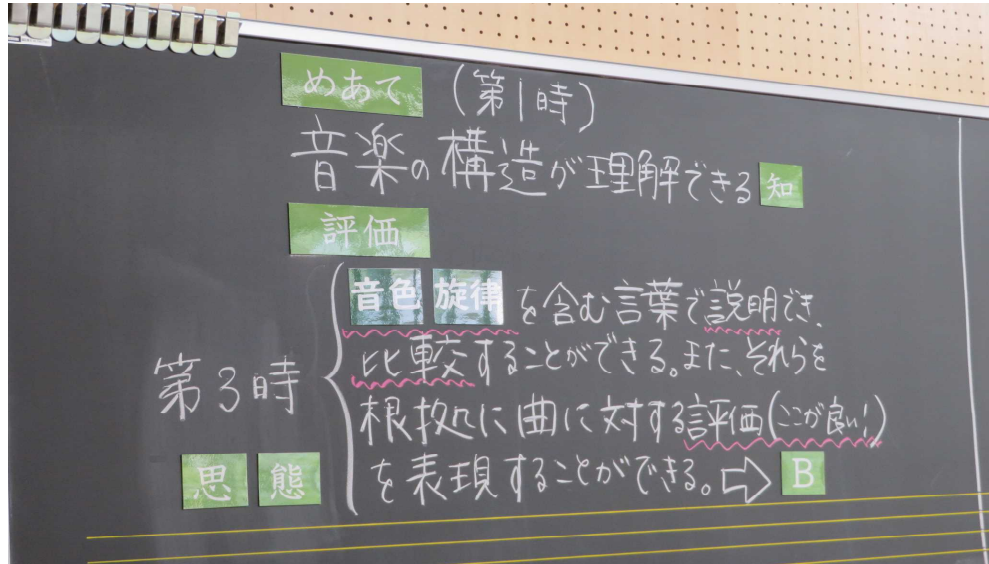 めあて (第1時)
音楽の構造が理解できる 知
評価
音色 旋律 を含む言葉で説明でき、
比較することができる。また、それらを
根拠に曲に対する評価(ここが良い!)
を表現することができる。⇨ B
第3時
思 態